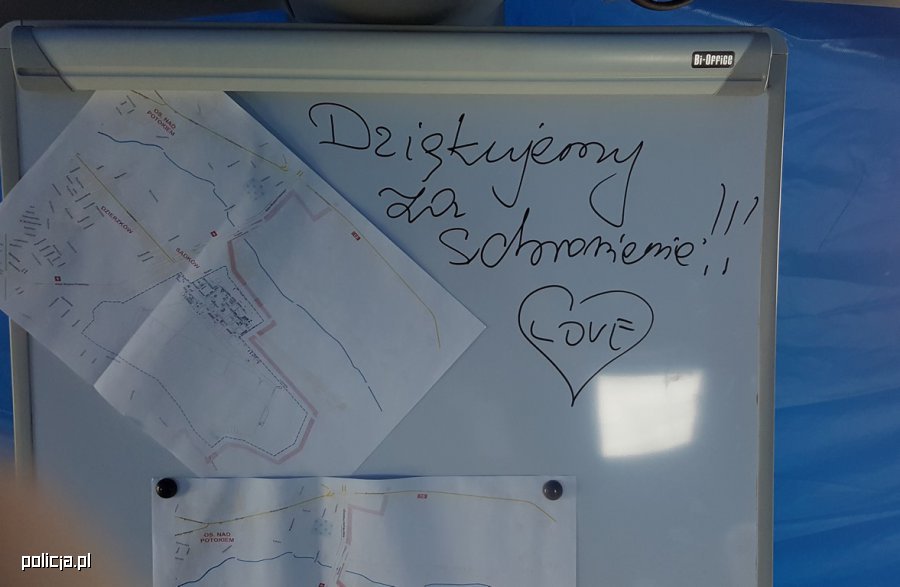 Bi-Office
Dziękujemy
za
schronienie!!!
LOVE
OS. NAD
POTOKIEM
DZIERZKÓW
SADKÓW
OS. NAD
POTOKIEM
policja.pl